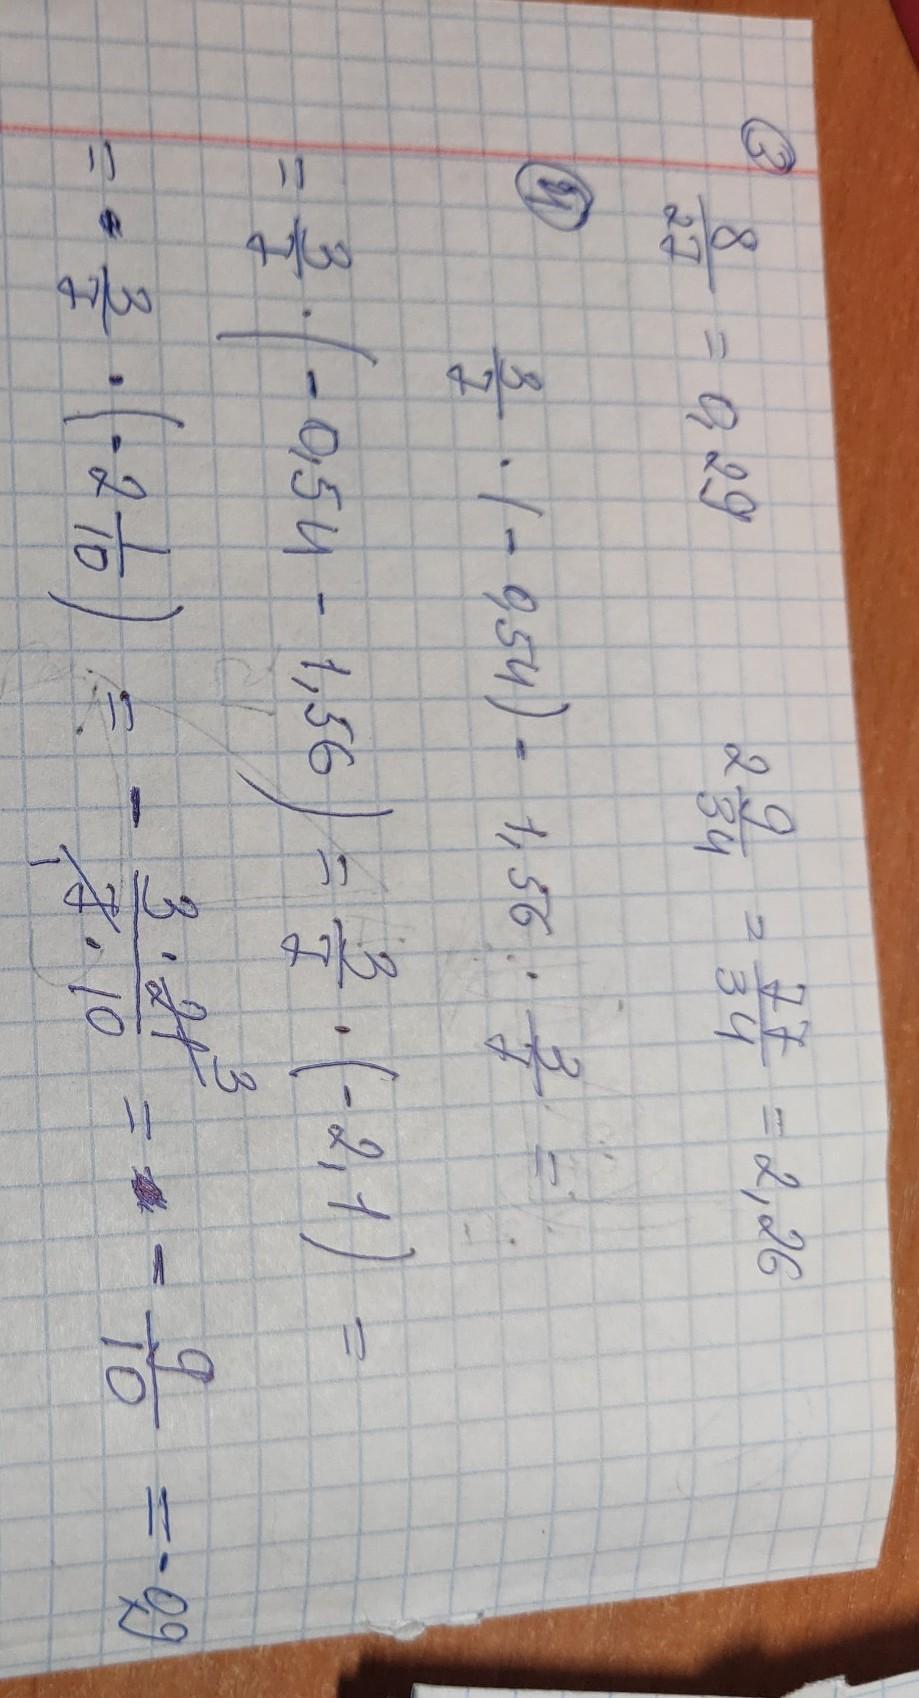 ③ 8/27 = 0,29 2 9/34 = 77/34 = 2,26
④ 3/7 · (-0,54) - 1,56 · 3/7 =
= 3/7 · (-0,54 - 1,56) = 3/7 · (-2,1) =
= 3/7 · (-2 1/10) = - 3·21 3/7·10 1 = - 9/10 = -0,9